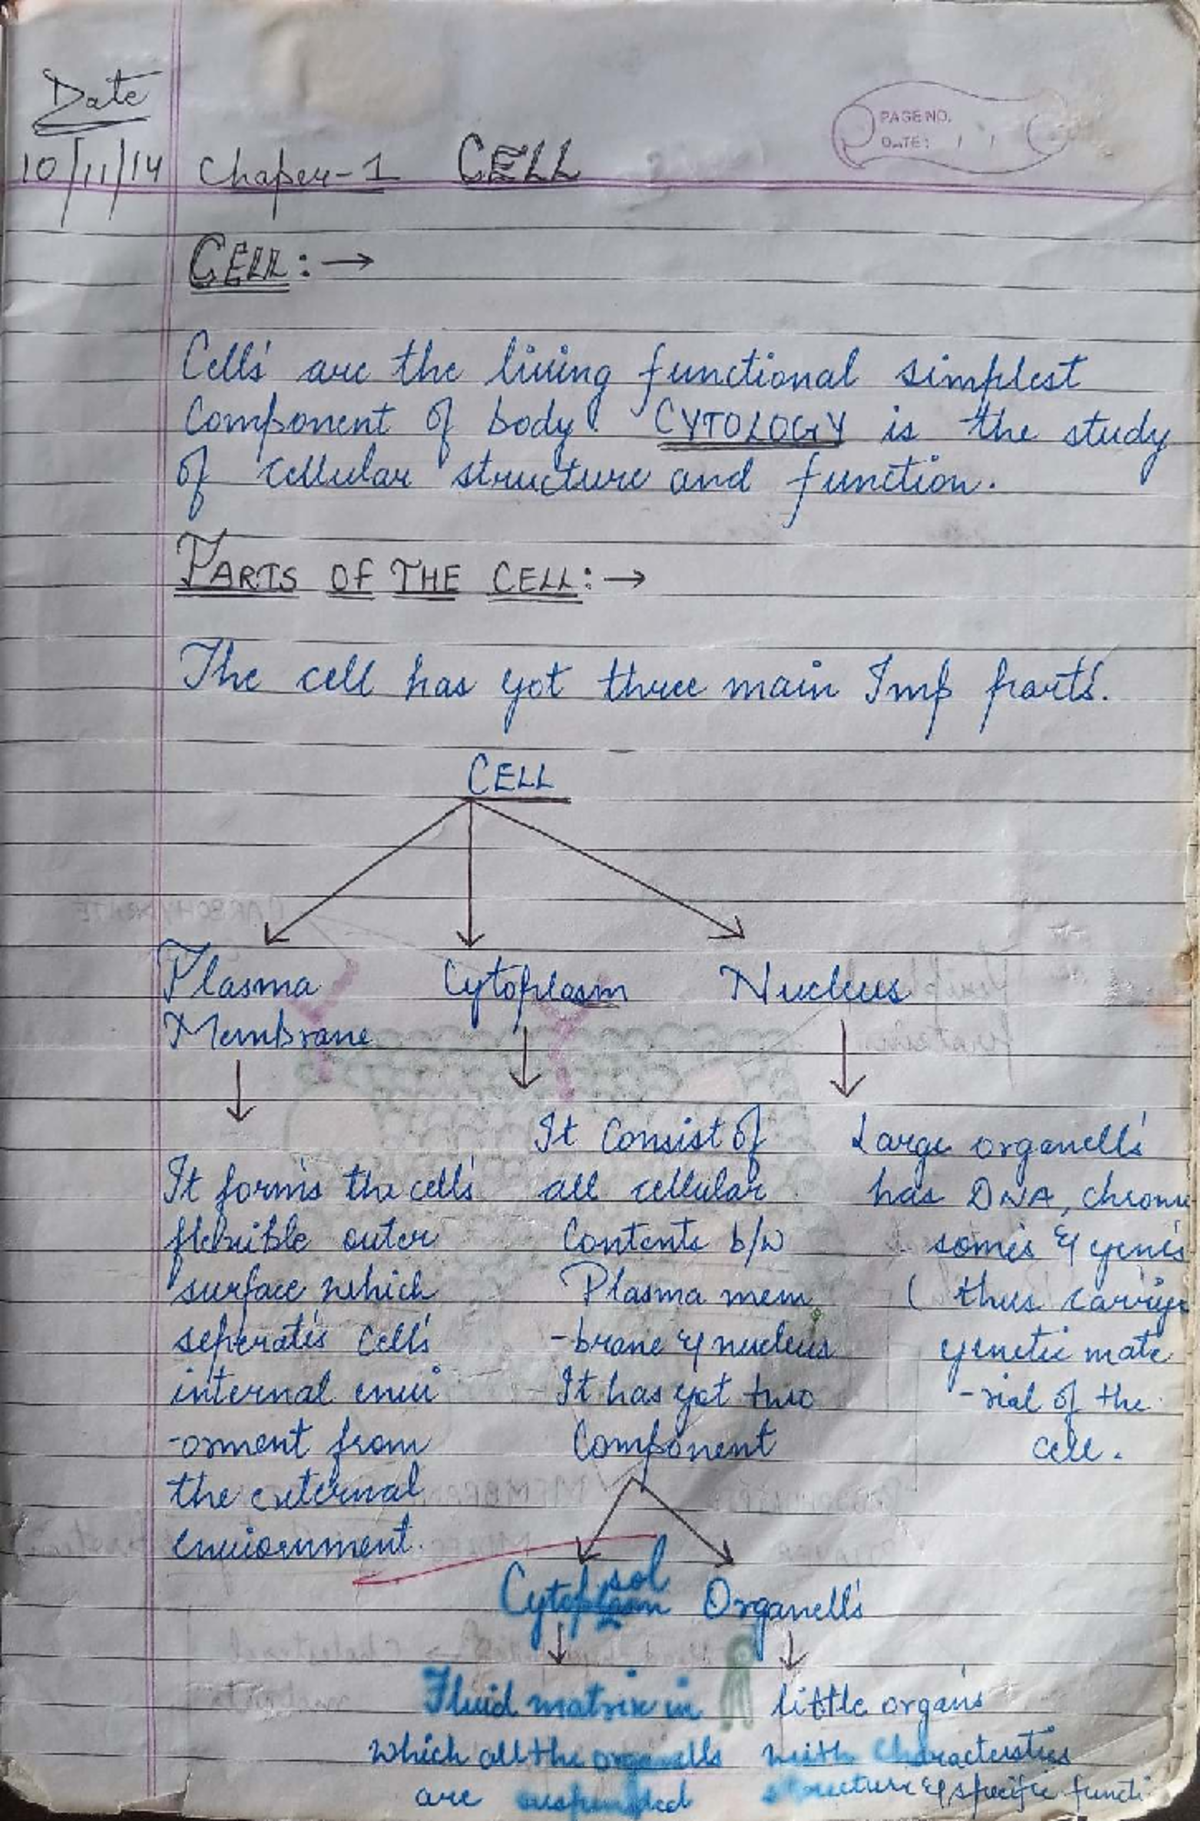 Date
PAGE NO.
DATE: / /
10/11/14 Chaper-1 CELL
CELL:→
Cells are the living functional simplest
Component of body. CYTOLOGY is the study
of cellular structure and function.
PARTS OF THE CELL:→
The cell has got three main Imp parts.
CELL
Plasma
Membrane
It forms the cells
flexible outer
surface which
seperates Cells
internal envi
-orment from
the external
enviornment.
Cytoplasm
It Consist of
all cellular
Contents b/w
Plasma mem
-brane & nucleus
It has got two
Component
Nucleus
Large organells
has DNA, chromo
somes & genes
( thus carries
genetic mate
-rial of the
cell.
Cytosol
Fluid matrix in
which all the organells
are suspended
Organells
little organs
with Characterstics
structure & specific functi